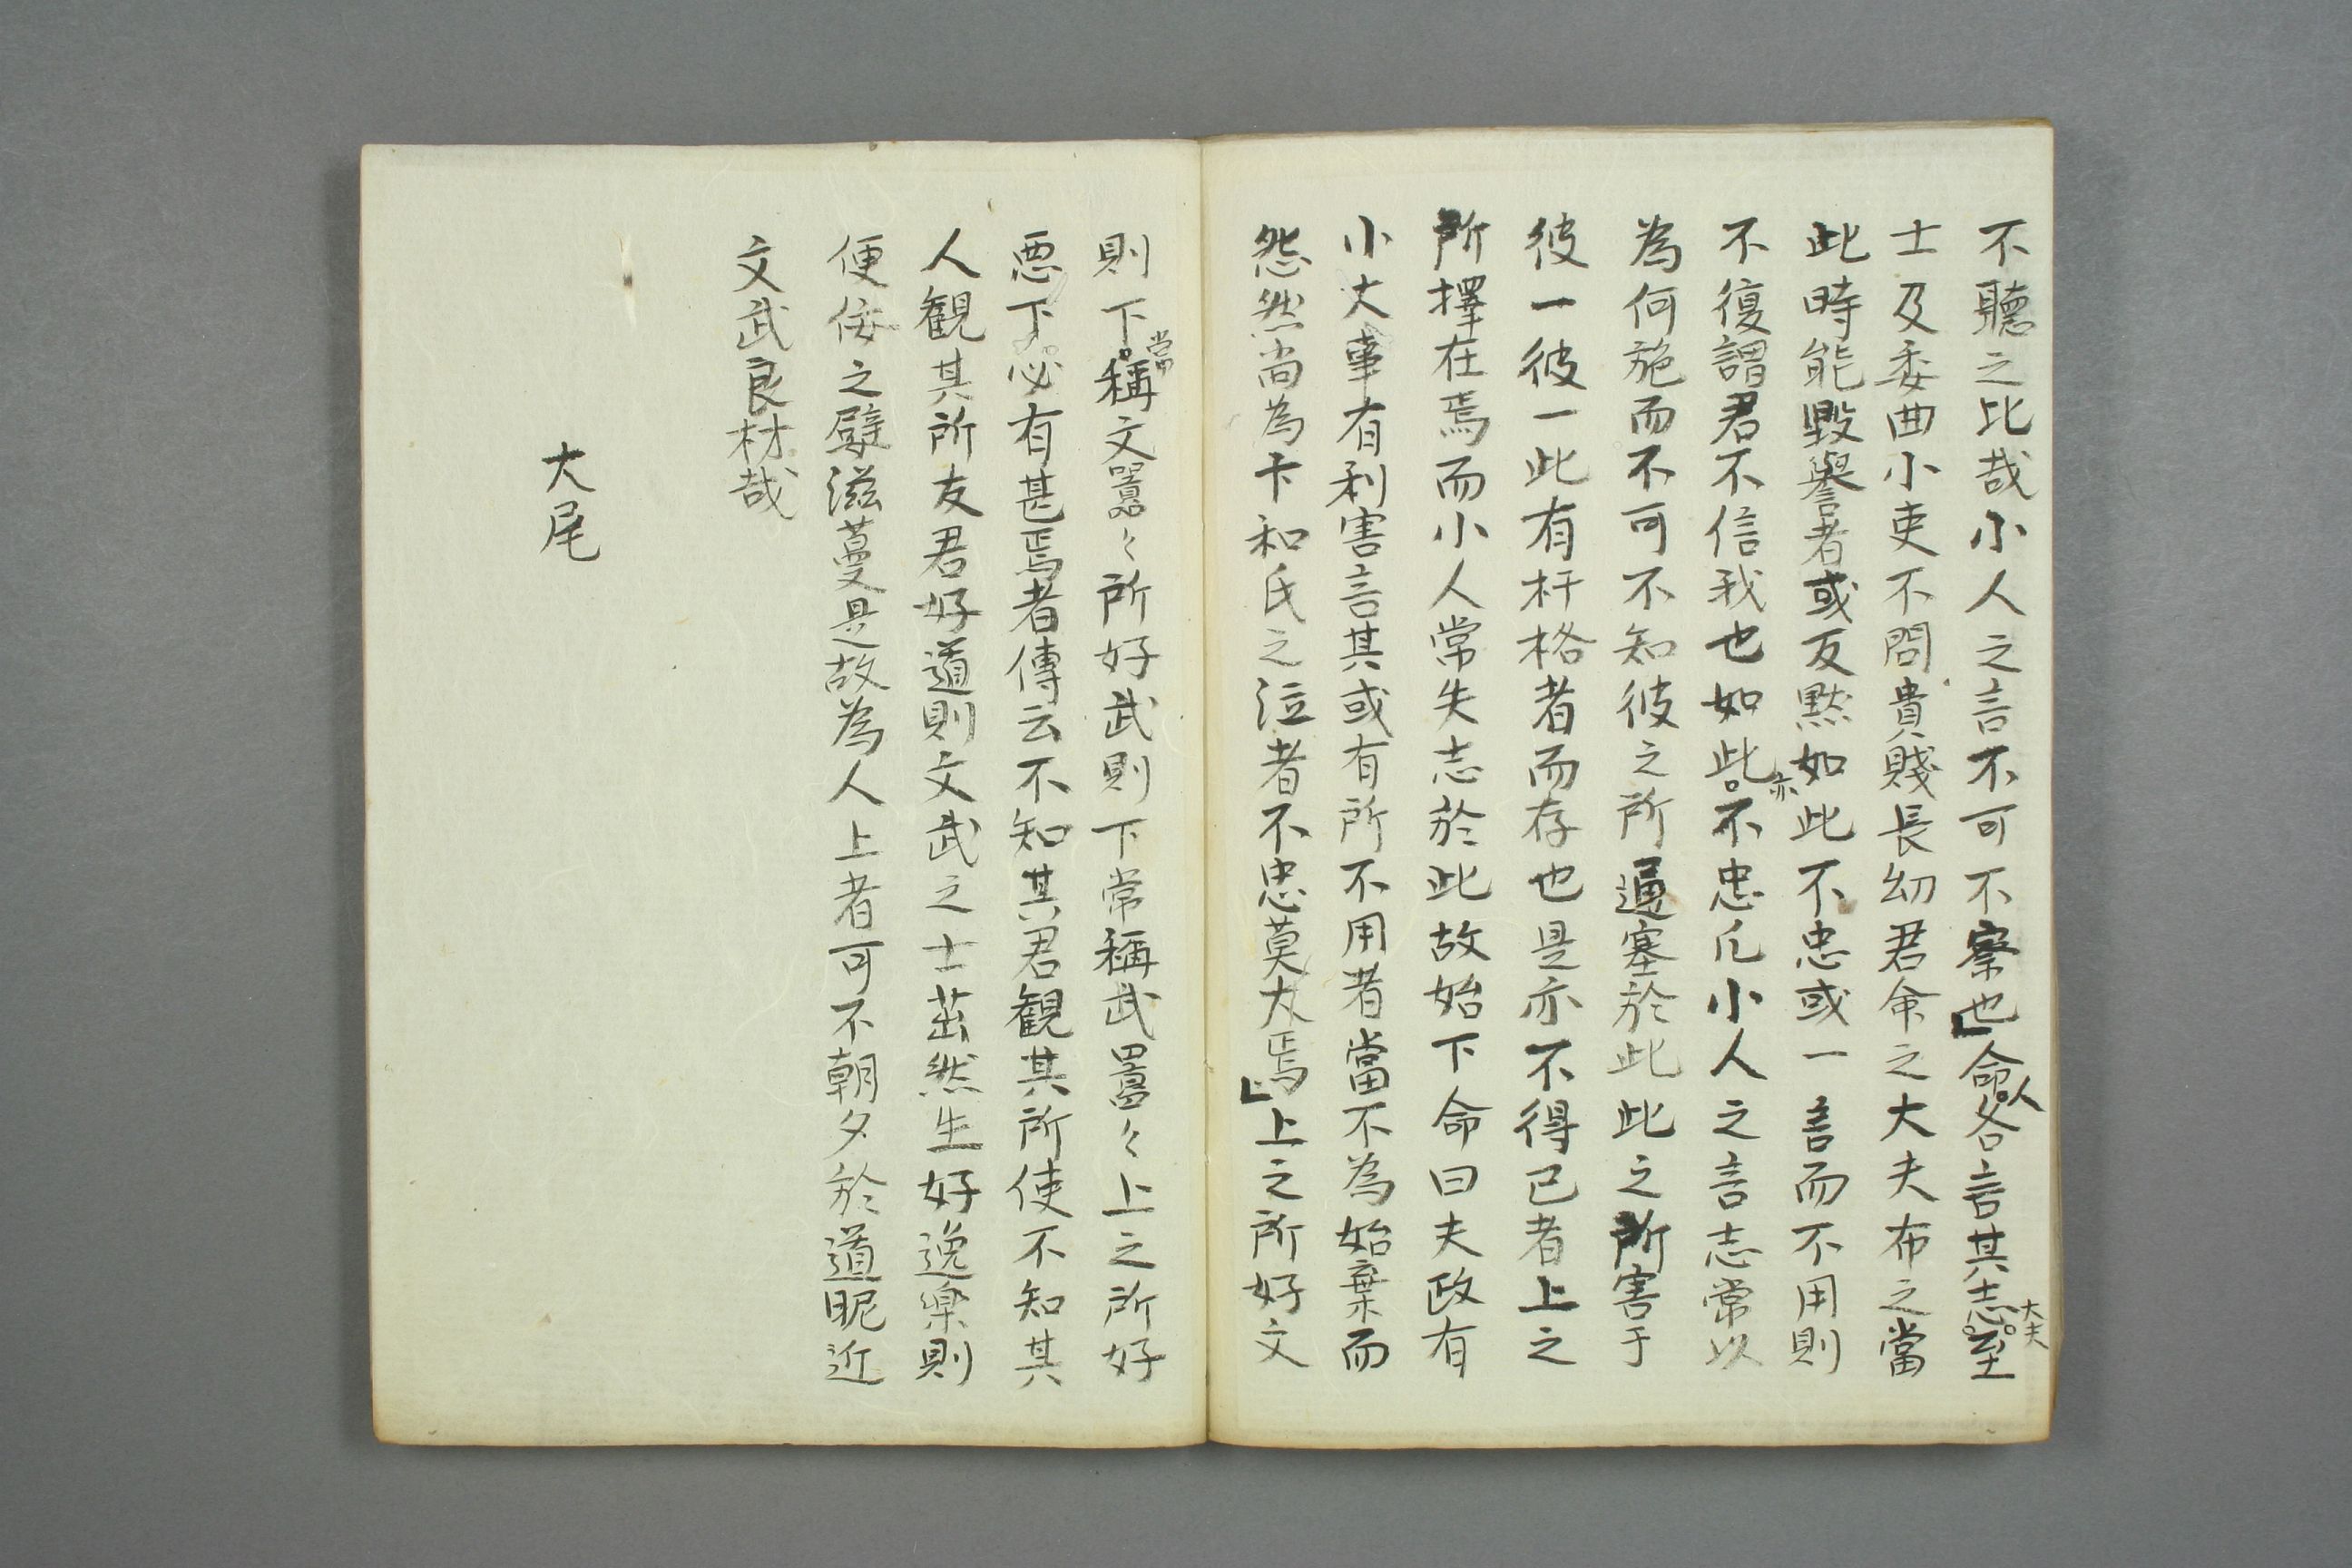 不聽之比哉小人之言不可不察也」命人各言其志大夫至
士及委曲小吏不問貴賤長幼君命之大夫布之當
此時能毀譽者或反黙如此不忠或一言而不用則
不復謂君不信我也如此亦不忠凡小人之言志常以
為何施而不可不知彼之所逼塞於此此之所害于
彼一彼一此有杆格者而存也是亦不得已者上之
所擇在焉而小人常失志於此故始下命曰夫政有
小大事有利害言其或有所不用者當不為始棄而
怨然尚為卞和氏之泣者不忠莫大焉」上之所好文
則下常稱文囂々所好武則下常稱武囂々上之所好
悪下必有甚焉者傳云不知其君観其所使不知其
人観其所友君好道則文武之士茁然生好逸楽則
便佞之嬖滋蔓是故為人上者可不朝夕於道昵近
文武良材哉
大尾